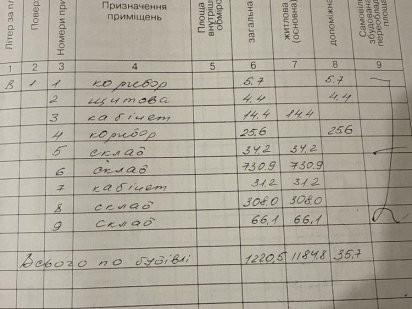 Літер за пл
Повер
Номери при
Призначення приміщень
Площа внутрішн обміро
загальна
житлова (основна)
допоміжна
Самовіль збудована переобла площа
1 2 3 4 5 6 7 8 9
В 1 1 коридор 5,7 5,7
2 щитова 4,4 4,4
3 кабінет 14,4 14,4
4 коридор 25,6 25,6
5 склад 34,2 34,2
6 склад 730,9 730,9
7 кабінет 31,2 31,2
8 склад 308,0 308,0
9 склад 66,1 66,1
Всього по будівлі 1220,5 1184,8 35,7